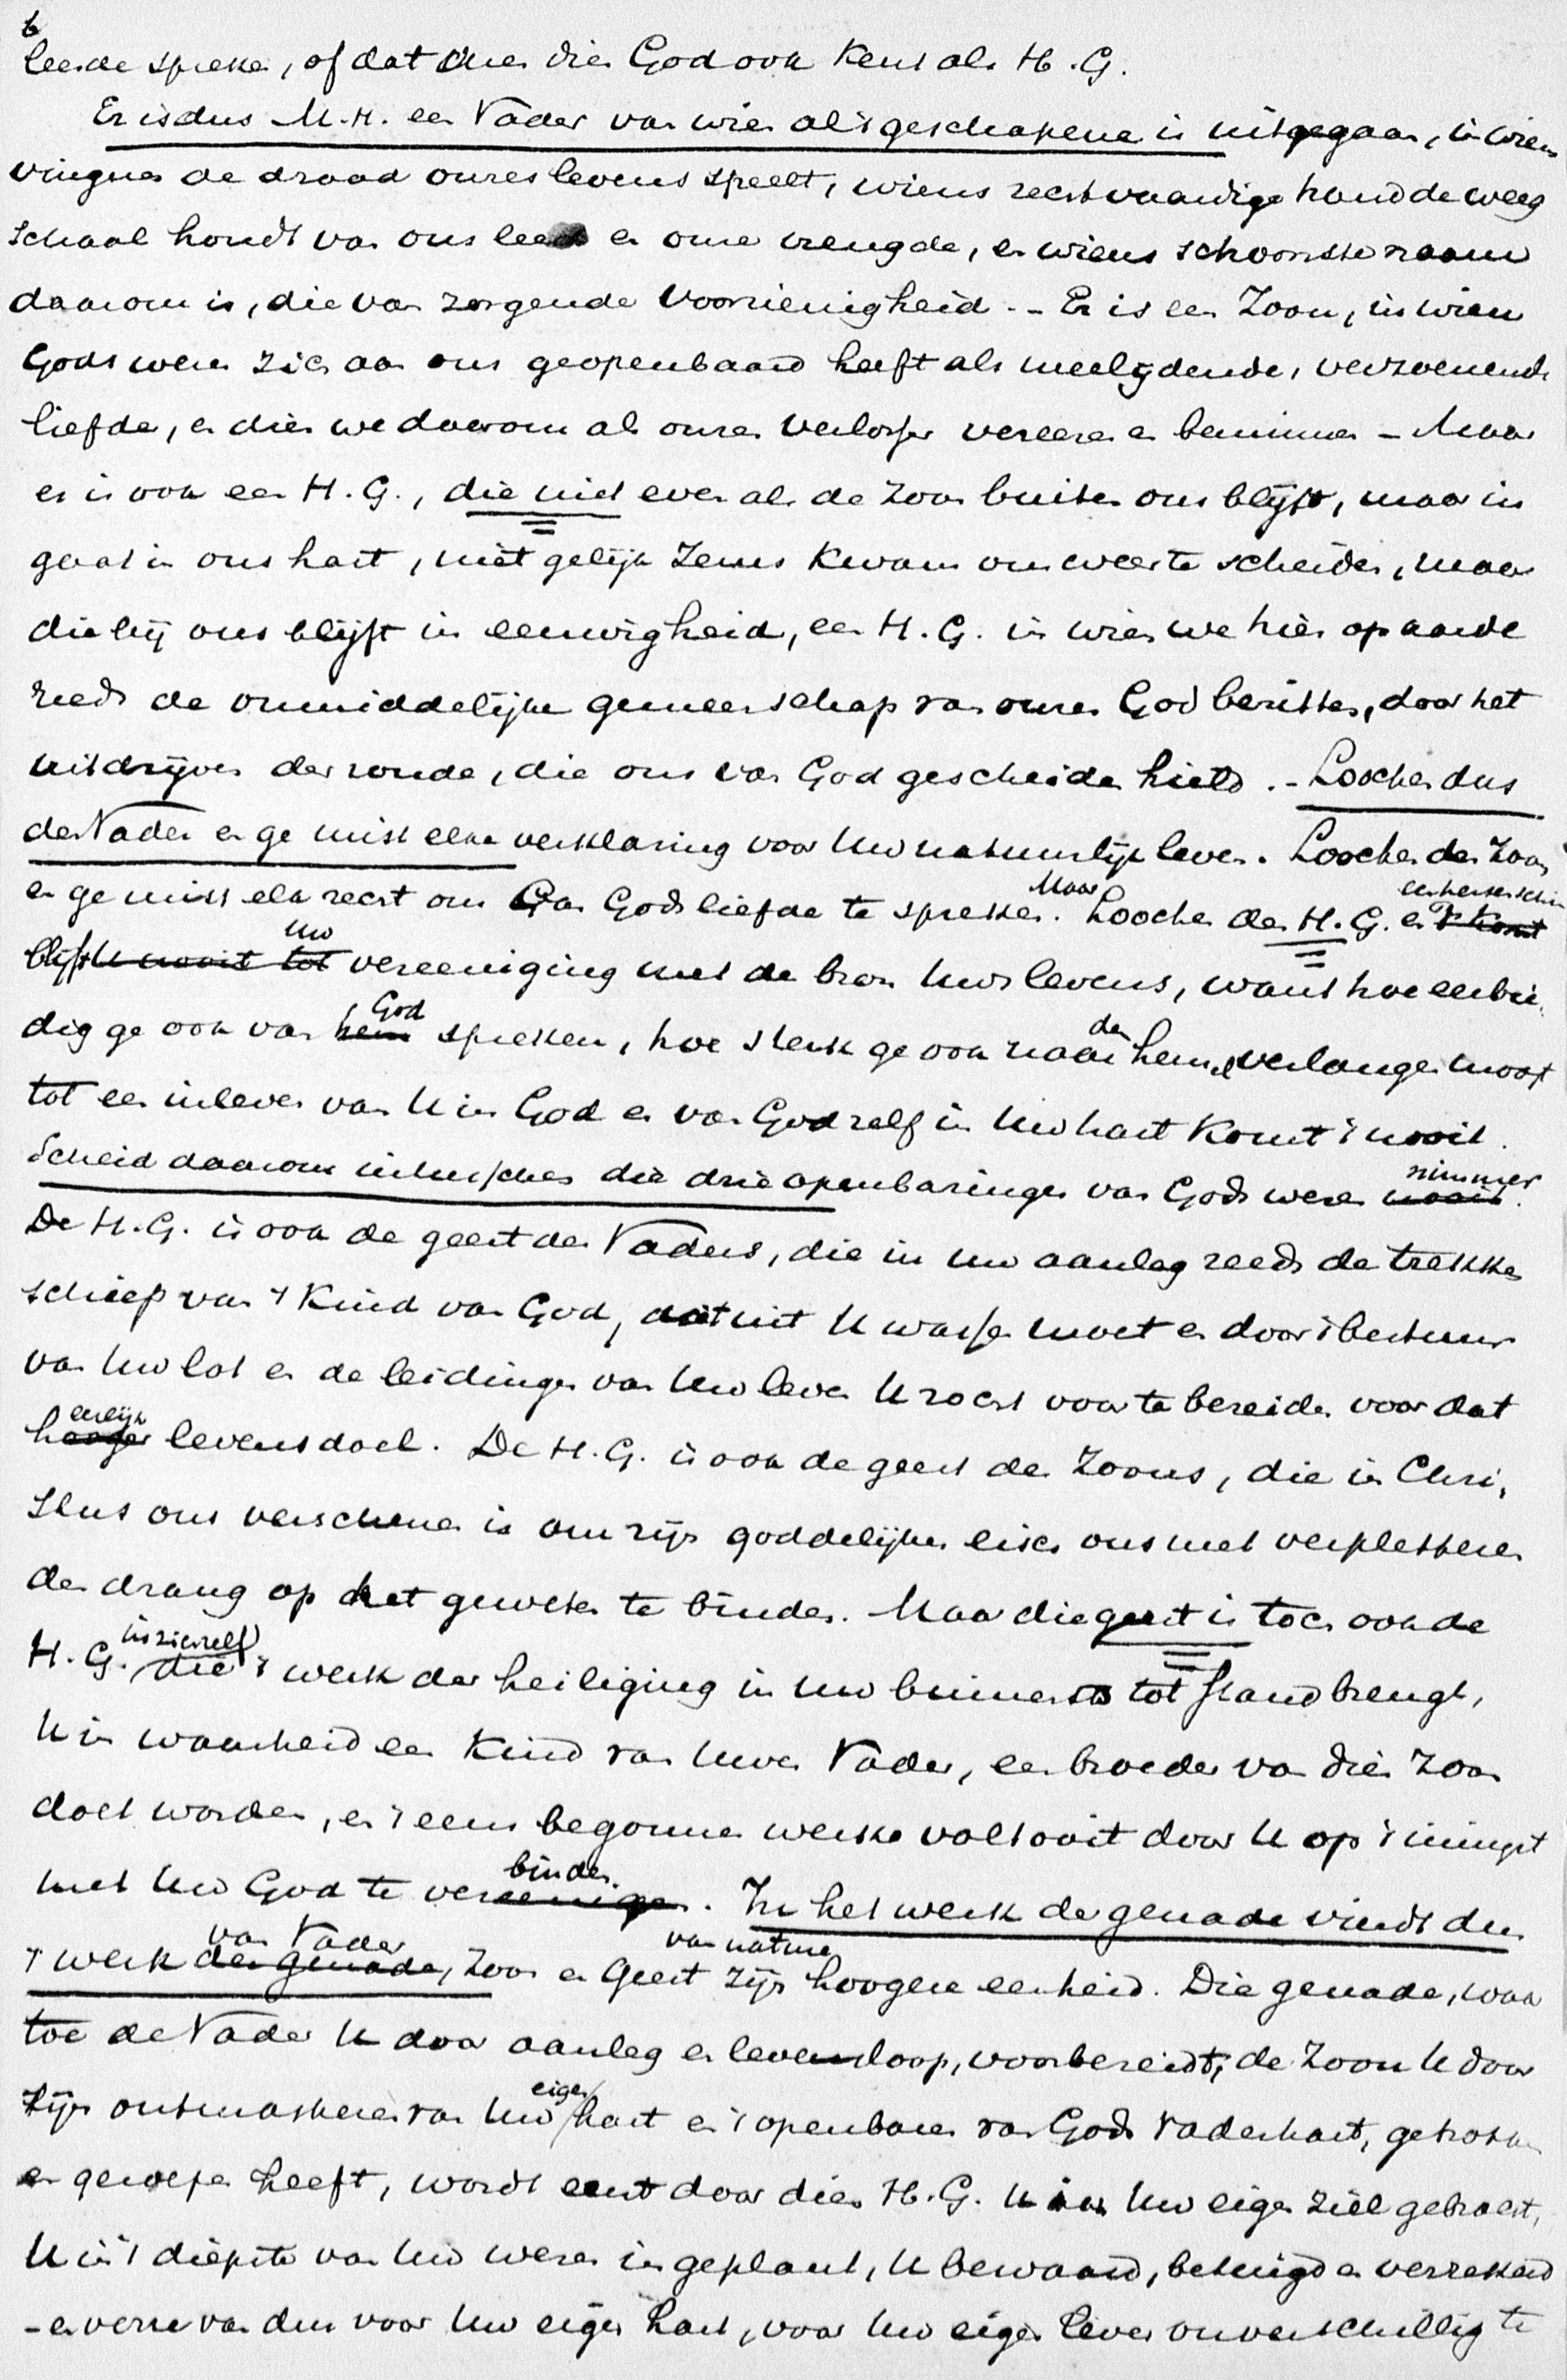 6
leerde spreken, of dat men dien God ook kent als H.G.
Er is dus M.H. een Vader van wien al 't geschapene is uitgegaan, in wiens
vingren de draad onzes levens speelt, wiens rechtvaardige hand de weeg
schaal houdt van ons leed en onze vreugde, en wiens schoonste naam
daarom is, die van zorgende Voorzienigheid. - Er is een Zoon, in wien
Gods wezen zich aan ons geopenbaard heeft als meelijdende, verzoenende
liefde, en dien we daarom als onzen Verlosser vereeren en beminnen - Maar
er is ook een H.G., die niet even als de Zoon buiten ons blijft, maar in
gaat in ons hart, niet gelijk Jezus kwam om weer te scheiden, maar
die bij ons blijft in eeuwigheid, een H.G. in wien we hier op aarde
reeds de onmiddelijke gemeenschap van onzen God bezitten, door het
uitdrijven der zonde, die ons van God gescheiden hield. - Loochen dus
den Vader en ge mist elke verklaring voor Uw natuurlijk leven. Loochen den Zoon
en ge mist elk recht om van Gods liefde te spreken. Maar Loochen den H.G. en 't komt een hersenschim
blijft U nooit tot Uw vereeniging met de bron Uws levens, want hoe eerbie
dig ge ook van hem God spreken, hoe sterk ge ook naar den hemel verlangen moogt
tot een inleven van U in God en van God zelf in Uw hart komt 't nooit.
Scheid daarom intusschen die drie openbaringen van Gods wezen nooit nimmer.
De H.G. is ook de geest des Vaders, die in uw aanleg reeds de trekken
schiep van 't Kind van God, dat uit U wassen moet en door 't bestuur
van Uw lot en de leidingen van Uw leven U zocht voor te bereiden voor dat
hooger heerlijk levensdoel. De H.G. is ook de geest des Zoons, die in Chri,
stus ons verschenen is om zijn goddelijken eisch ons met verpletteren
den drang op het geweten te binden. Maar die geest is toch ook de
H.G. die in zichzelf 't werk der heiliging in Uw binnenste tot stand brengt,
U in waarheid een Kind van Uwen Vader, een broeder van dien Zoon
doet worden, en 't eens begonnen werk voltooit door U op 't innigst
met Uw God te vereenigen binden. In het werk der genade vindt dus
't werk der genade van Vader, Zoon en Geest zijn van nature hoogere eenheid. Die genade, waar
toe de Vader U door aanleg en levensloop, voorbereidt, de Zoon U door
zijn ontmaskeren van Uw eigen hart en 't openbaren van Gods Vaderhart, getrokken
en gewezen heeft, wordt eerst door dien H.G. U in Uw eigen ziel gebracht,
U in 't diepste van Uw wezen ingeplant, U bewaard, betuigd en verzekerd
- en verre van dus voor Uw eigen hart, voor Uw eigen leven onverschillig te